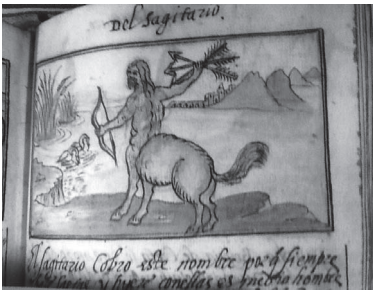 Del Sagitario.
Sagitario Cobro este nombre porq̃ siempre
y hyere conellas es medio hombre